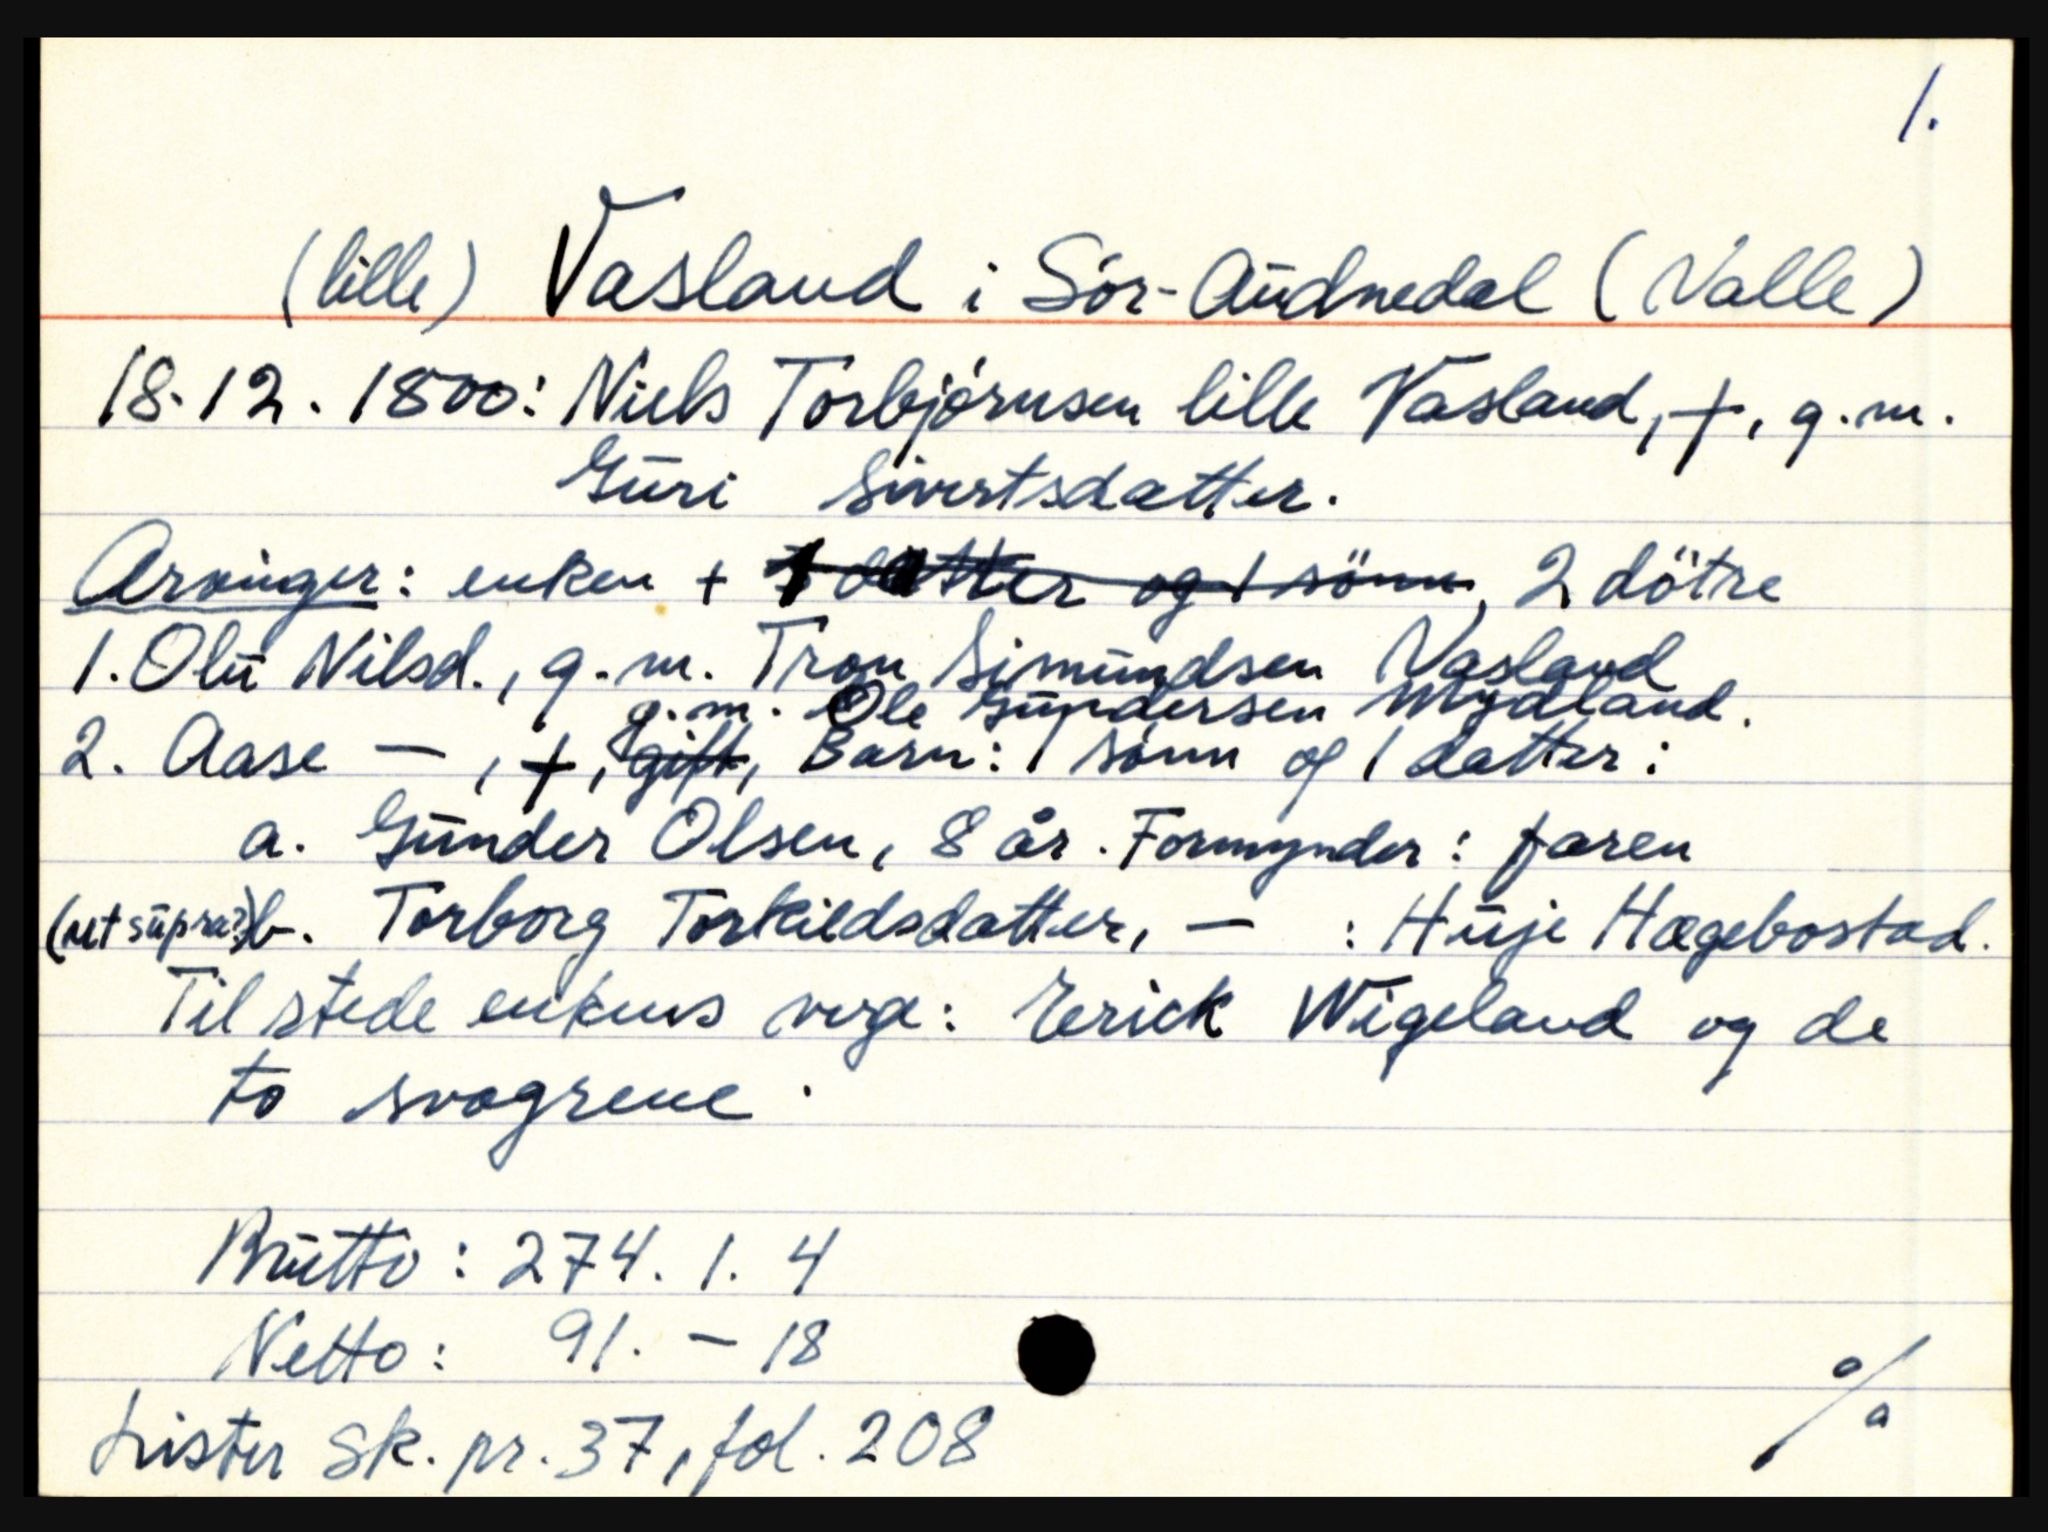 1.
(lille) Vasland i Sör-Audnedal (Valle)
18.12.1800: Niels Torbjörnsen lille Vasland, †, g.m.
Guri Sivertsdatter.
Arvinger: enken + 1 datter og 1 sönn, 2 dötre
1. Olu Nilsd., g.m. Tron Simundsen Vasland
g.m. Ole Gundersen Mydland.
2. Aase — , †, gift, Barn: 1 sönn og 1 datter:
a. Gunder Olsen, 8 år. Formynder: faren
(ut supra?) b. Torborg Torkildsdatter, — : Huje Hægebostad.
Til stede enkens verge: Eerick Wigeland og de
to svogrene.
Brutto: 274. 1. 4
Netto: 91. – 18
Lister Sk. pr. 37, fol. 208